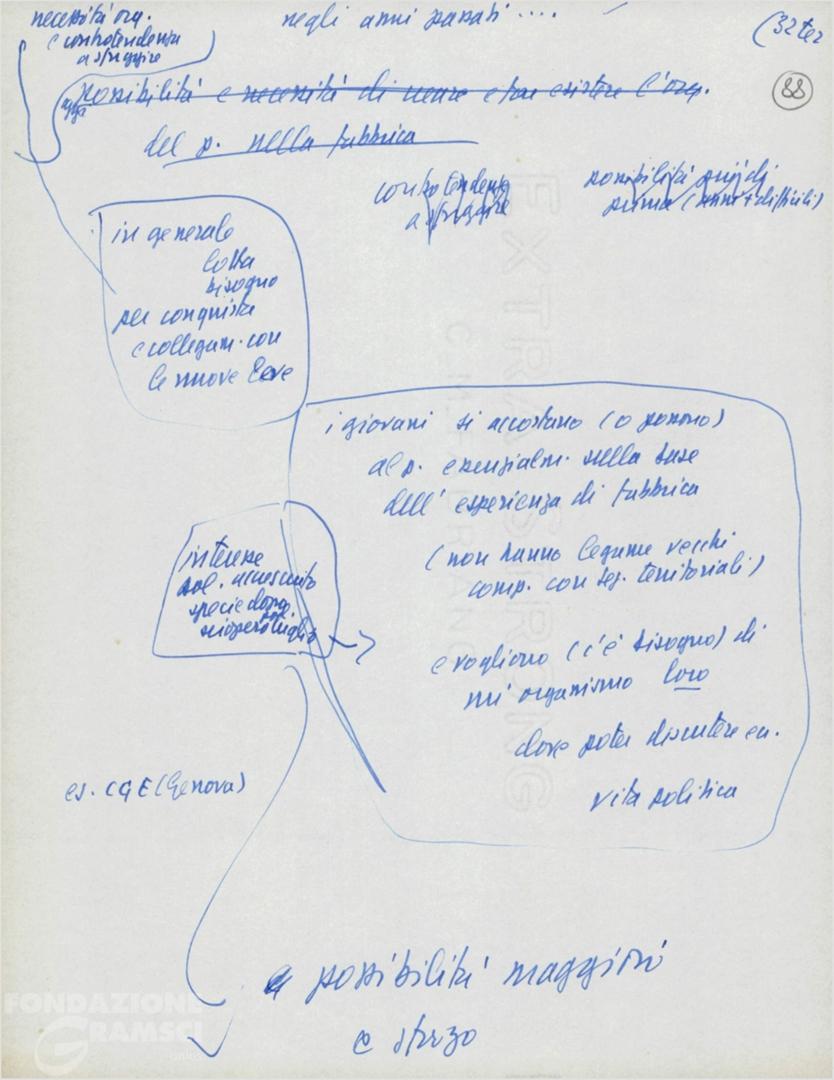 necessità org.
e controtendenza
a sfuggire
negli anni passati ....
(32ter
88
oggi
possibilità e necessità di
esistere l'org.
del p. nella fabbrica
controtendenza
a sfuggire
possibilità più di
prima (anni + difficili)
in generale
lotta
bisogno
per conquista
e collegam. con
le nuove leve
i giovani si accostano (o possono)
al p. essenzialm. sulla base
dell'esperienza di fabbrica
(non hanno legame vecchi
comp. con sez. territoriali)
interesse
pol. accresciuto
specie dopo
sciopero luglio
e vogliono (c'è bisogno) di
un organismo loro
dove poter discutere
vita politica
es. CGE (Genova)
possibilità maggiori
e sforzo
EXTRA STRONG
FONDAZIONE
GRAMSCI